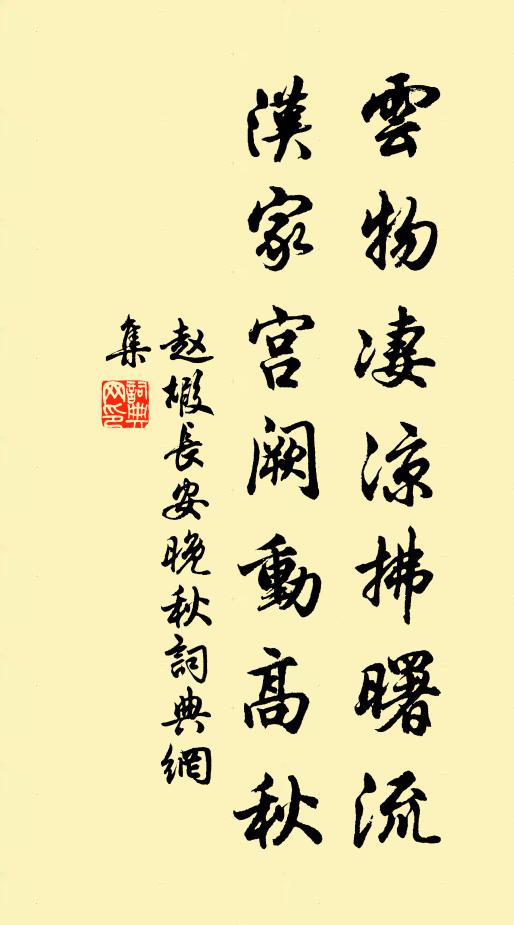 雲物淒涼拂曙流
漢家宮闕動高秋
赵嘏長安晚秋詞典網
集
詞典
网印